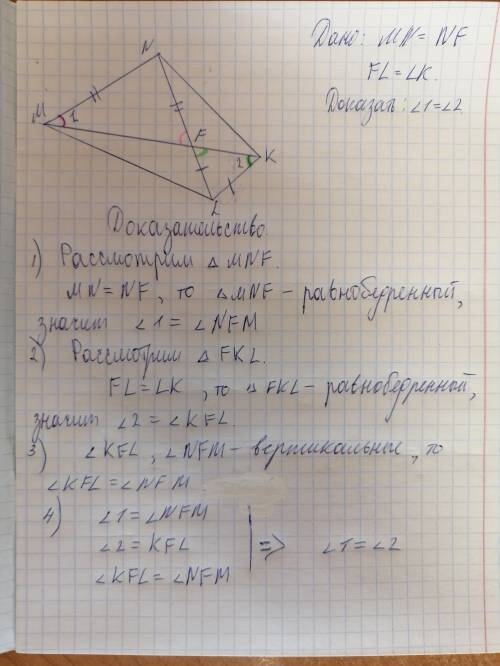 Дано: MN = NF
FL = LK.
Доказать: ∠1=∠2
N
M
1
F
2
K
L
Доказательство
1) Рассмотрим △ MNF.
MN = NF, то △MNF – равнобедренный,
значит ∠1 = ∠NFM
2) Рассмотрим △ FKL.
FL = LK, то △FKL – равнобедренный,
значит ∠2 = ∠KFL.
3) ∠KFL, ∠NFM – вертикальные, то
∠KFL = ∠NFM
4) ∠1 = ∠NFM
∠2 = KFL => ∠1 = ∠2
∠KFL = ∠NFM